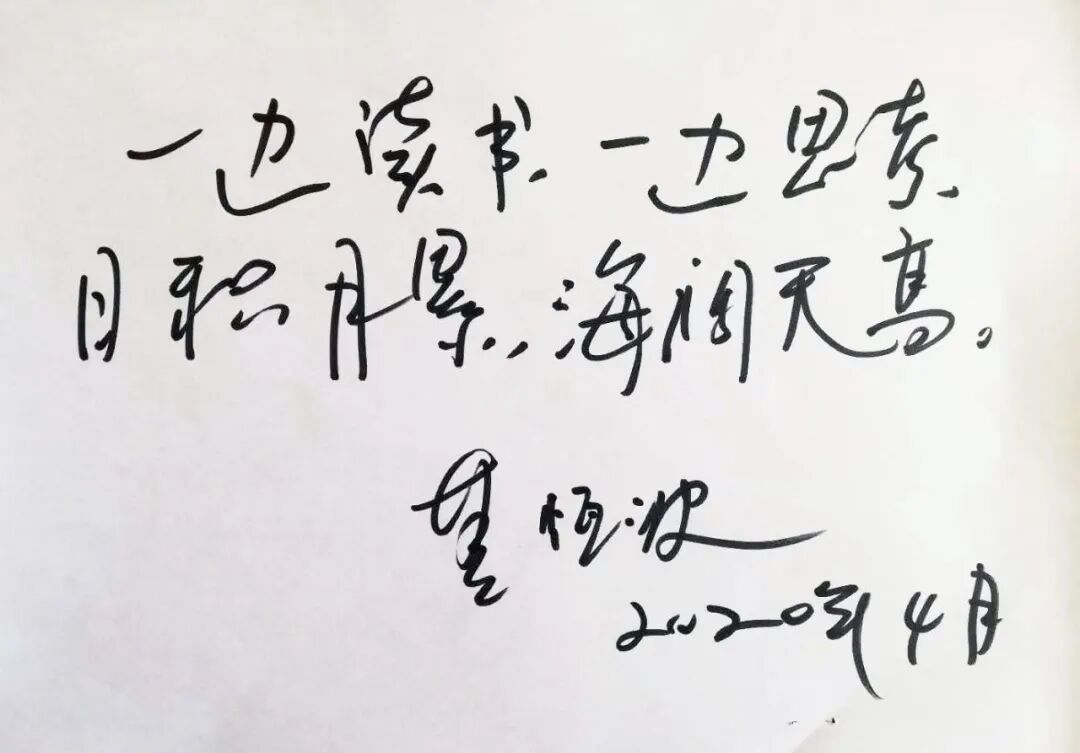 一边读书、一边思考、
日积月累、海阔天高。
恒波
2020年4月